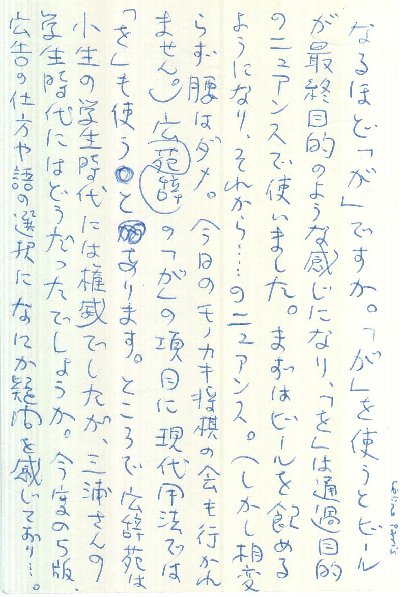 なるほど「が」ですか。「が」を使うとビール
が最終目的のような感じになり、「を」は通過目的
のニュアンスで使いました。まずはビールを飲める
ようになり、それから……のニュアンス。(しかし相変
らず腰はダメ。今日のモノカキ将棋の会も行かれ
ません。)広苑辞の「が」の項目に現代用法では
「を」も使うとあります。ところで広辞苑は
小生の学生時代には権威でしたが、三浦さんの
学生時代にはどうだったでしょうか。今度の5版、
広告の仕方や語の選択になにか疑問を感じており…。